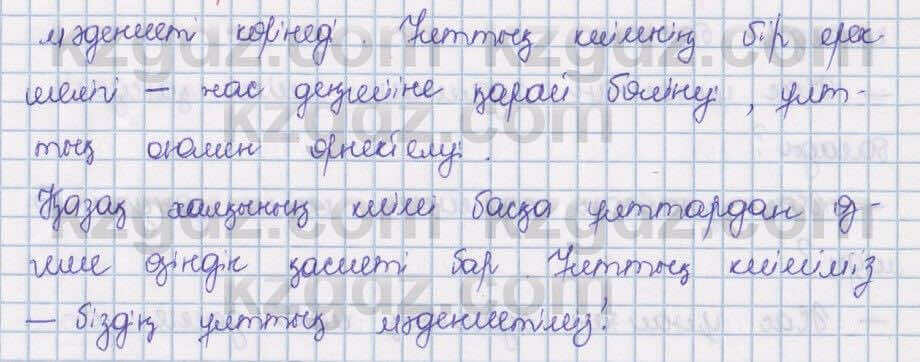 мәдениеті көрінеді. Ұлттық киімнің бір ерек-
шелігі – жас деңгейіне қарай бөлінуі, ұлт-
тық оюмен өрнектелуі.
Қазақ халқының киімі басқа ұлттардан ө-
гше өзіндік қасиеті бар. Ұлттық киіміміз
– біздің ұлттық мәдениетіміз!
kzgdz.com